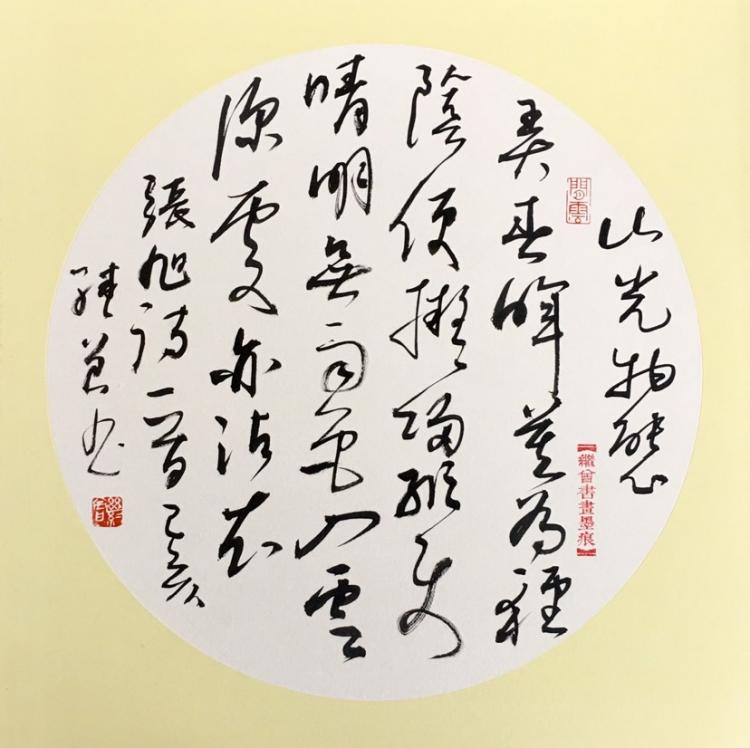 山光物態
弄春暉莫為輕
陰便擬歸縱使
晴明無雨色入雲
深處亦沾衣
張旭詩一首己亥
繼曾书
閒雲
【繼曾書畫墨痕】